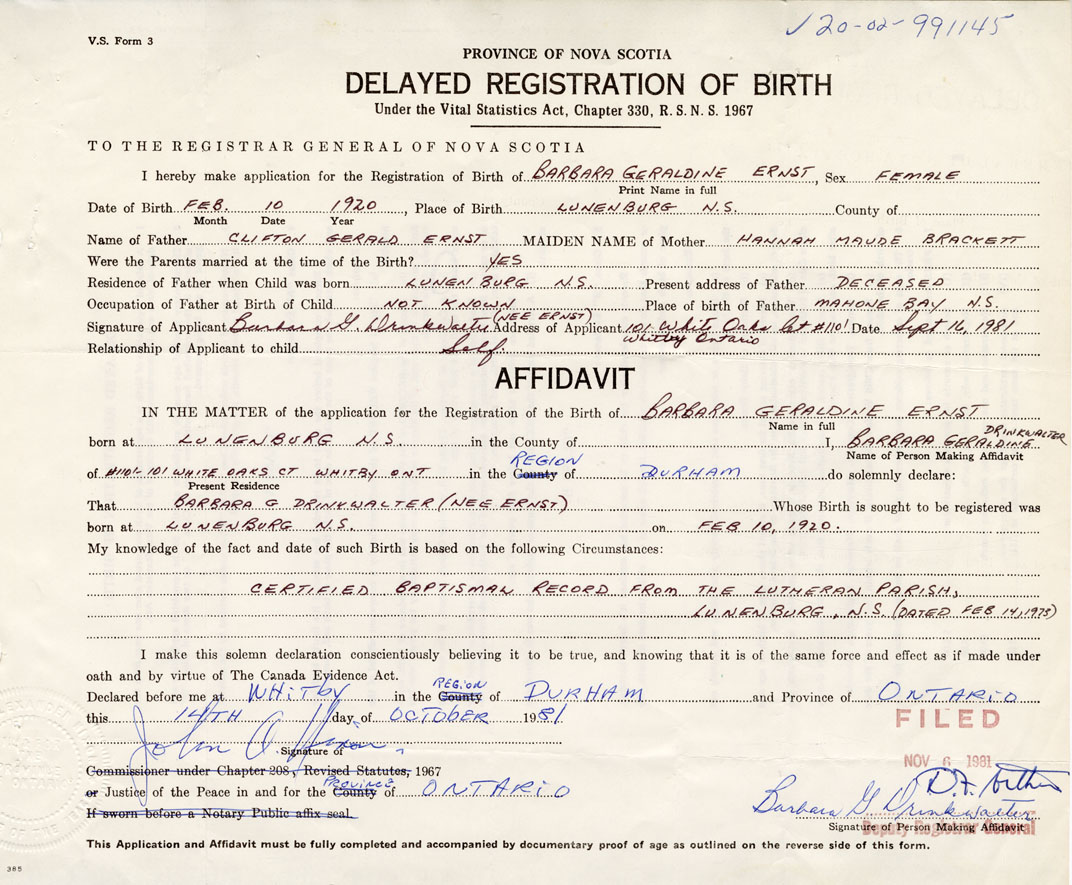 20-02-991145
V.S. Form 3
PROVINCE OF NOVA SCOTIA
DELAYED REGISTRATION OF BIRTH
Under the Vital Statistics Act, Chapter 330, R. S. N. S. 1967
TO THE REGISTRAR GENERAL OF NOVA SCOTIA
I hereby make application for the Registration of Birth of BARBARA GERALDINE ERNST, Sex FEMALE
Print Name in full
Date of Birth FEB. 10 1920, Place of Birth LUNENBURG N.S. County of
Month Date Year
Name of Father CLIFTON GERALD ERNST MAIDEN NAME of Mother HANNAH MAUDE BRACKETT
Were the Parents married at the time of the Birth? YES
Residence of Father when Child was born LUNENBURG N.S. Present address of Father DECEASED
Occupation of Father at Birth of Child NOT KNOWN Place of birth of Father MAHONE BAY N.S.
(NEE ERNST)
Signature of Applicant Barbara G. Drinkwalter Address of Applicant 101 White Oaks Ct #1101 Date Sept 16, 1981
Whitby Ontario
Relationship of Applicant to child Self.
AFFIDAVIT
IN THE MATTER of the application for the Registration of the Birth of BARBARA GERALDINE ERNST
Name in full
DRINKWALTER
born at LUNENBURG N.S. in the County of I, BARBARA GERALDINE
Name of Person Making Affidavit
REGION
of #1101-101 WHITE OAKS CT WHITBY ONT in the County of DURHAM do solemnly declare:
Present Residence
That BARBARA G DRINKWALTER (NEE ERNST) Whose Birth is sought to be registered was
born at LUNENBURG N.S. on FEB 10, 1920.
My knowledge of the fact and date of such Birth is based on the following Circumstances:
CERTIFIED BAPTISMAL RECORD FROM THE LUTHERAN PARISH,
LUNENBURG, N.S. (DATED FEB 14, 1975)
I make this solemn declaration conscientiously believing it to be true, and knowing that it is of the same force and effect as if made under
oath and by virtue of The Canada Evidence Act.
REGION
Declared before me at WHITBY in the County of DURHAM and Province of ONTARIO
this 14TH day of OCTOBER 1981
FILED
John
Signature of
NOV 6 1981
Commissioner under Chapter 208, Revised Statutes, 1967
PROVINCE
or Justice of the Peace in and for the County of ONTARIO
If sworn before a Notary Public affix seal.
Barbara G Drinkwalter
Signature of Person Making Affidavit
Deputy Registrar General
This Application and Affidavit must be fully completed and accompanied by documentary proof of age as outlined on the reverse side of this form.
385